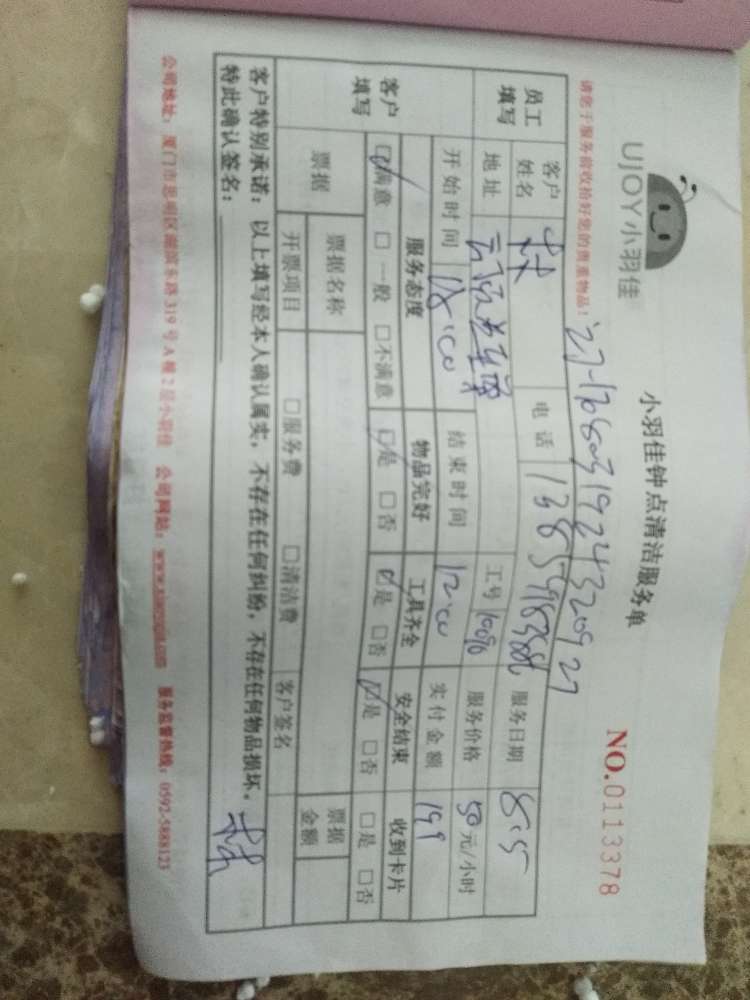 UJOY小羽佳
小羽佳钟点清洁服务单
NO.0113378
请您于服务前收拾好您的贵重物品!
员工填写
客户姓名 林 电话 服务日期 8.5
地址 工号 服务价格 50元/小时
开始时间 结束时间 12:00 实付金额 199
客户填写
服务态度 物品完好 工具齐全 安全结束 收到卡片
☑满意 □一般 □不满意 ☑是 □否 ☑是 □否 ☑是 □否 □是 □否
票据 票据名称 □服务费 □清洁费 票据金额
开票项目 客户签名
客户特别承诺:以上填写经本人确认属实,不存在任何纠纷,不存在任何物品损坏。
特此确认签名:
公司地址:厦门市思明区湖滨东路319号A幢2层小羽佳 公司网站: 服务监督热线:0592-5888123